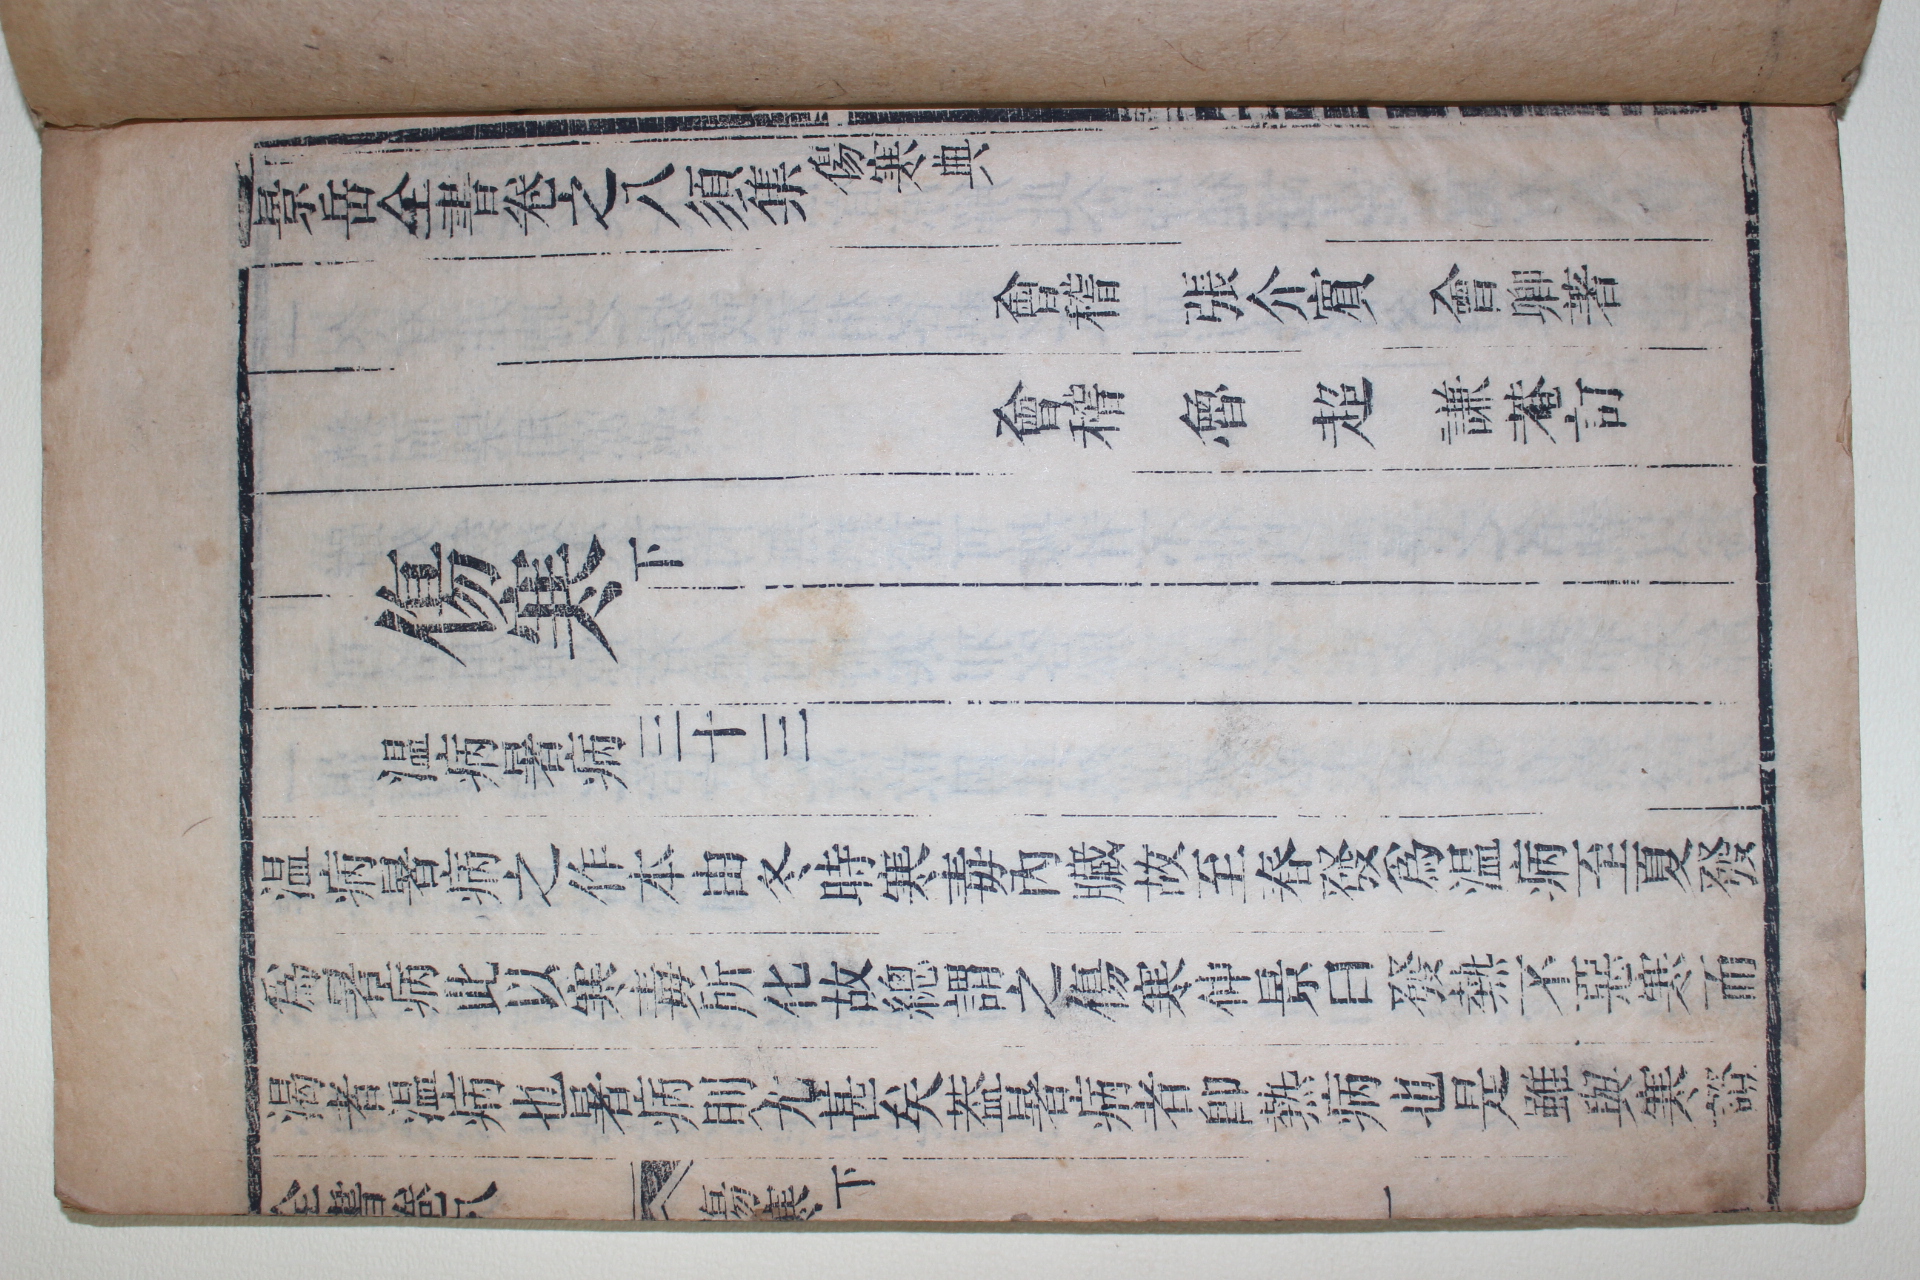 景岳全書卷之八須集 傷寒典
會稽 張介賓 會卿著
會稽 魯 超 謙菴訂
傷寒下
溫病暑病三十三
温病暑病之作本由冬時寒毒內臟故至春發為温病至夏發
為暑病此以寒毒所化故總謂之傷寒仲景曰發熱不惡寒而
渴者溫病也暑病則尤甚矣蓋暑病者即熱病也是雖與寒證
傷寒下 一